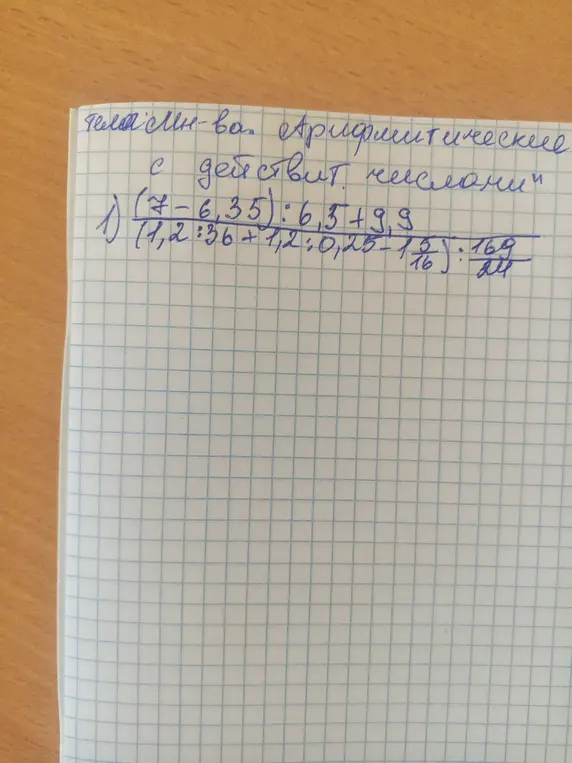 тема: Мн-ва. Арифмитические
с действит. числами"
1) (7 - 6,35) : 6,5 + 9,9
(1,2 : 36 + 1,2 : 0,25 - 1 5/16) : 169/24